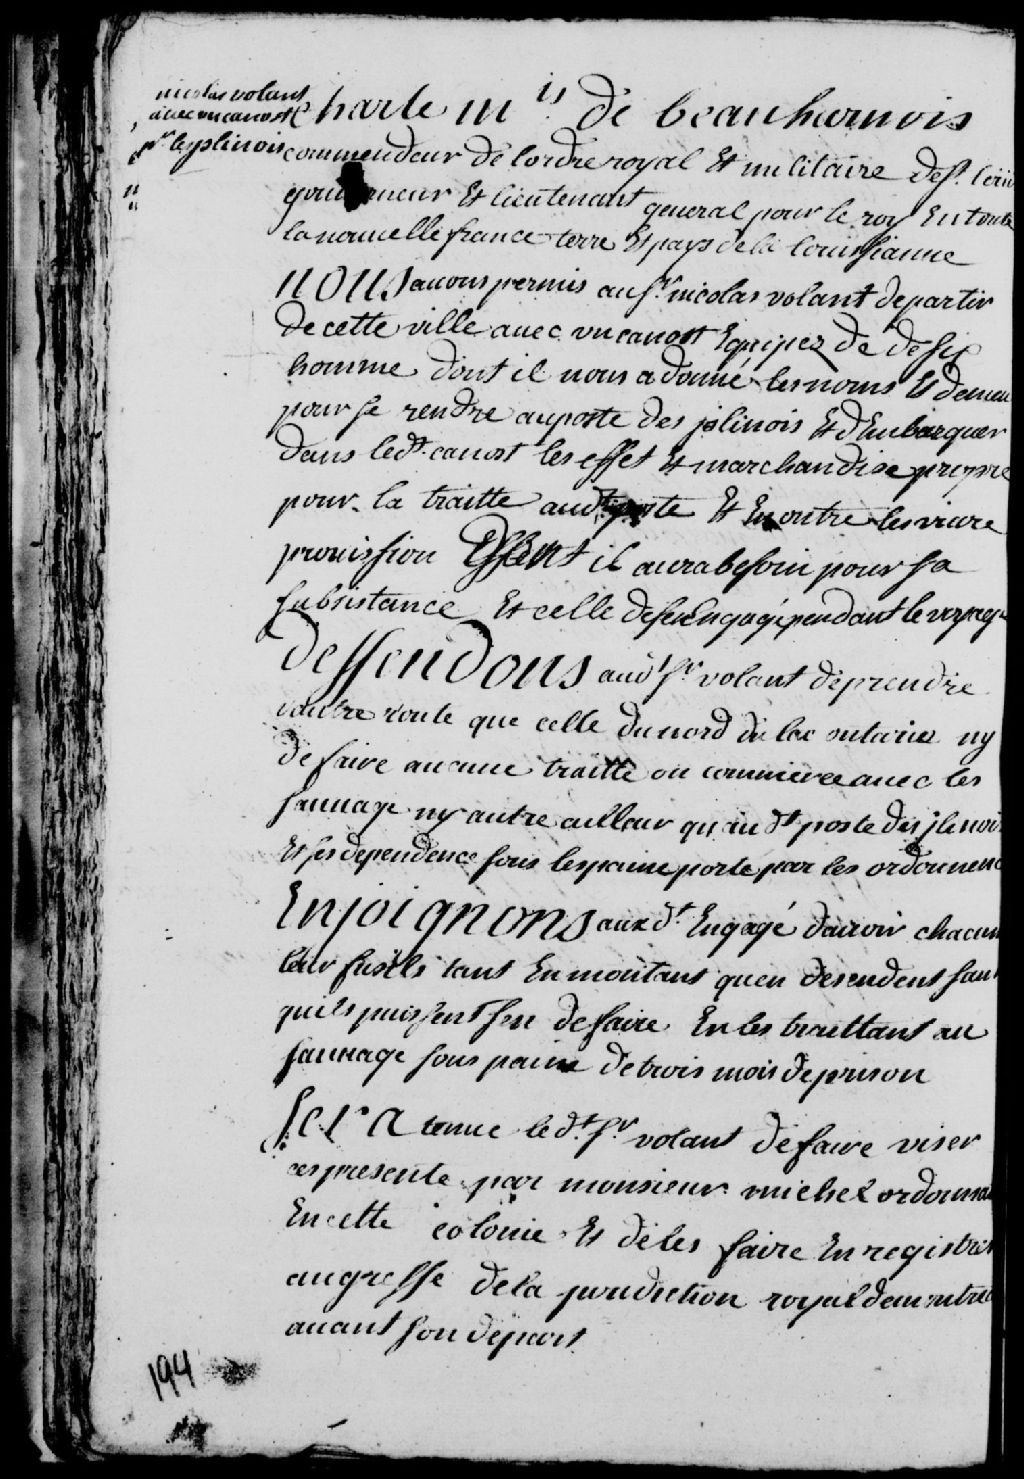 nicolas volant
avec un canost
pr. les jslinois
Charle mis. de beauharnois
commendeur de lordre royal Et militaire de st. loui
gouverneur Et lieutenant general pour le roy En toute
la nouuelle france terre Et pays de la louissianne
nous auons permis au sr. nicolas volant de partir
de cette ville auec vn canost Equipez de de six
homme dont il nous a donné les noms Et demeu
pour se rendre au poste des jslinois Et dEmbarquer
dans led. canost les effet Et marchandise propre
pour la traitte audt poste Et En outre les viure
prouission Et il aura besoin pour sa
subsistance Et celle de ses Engagé pendant le voyage
deffendons audt sr. volant de prendre
dautre route que celle du nord du lac ontario ny
de faire aucune traitte ou commerce auec les
sauuage ny autre ailleur qu'au dt poste des jlinois
Et ses dependence sous les paine porté par les ordonnenc
Enjoignons aux dt. Engagé dauoir chacun
leur fusils tant En montant quen desendent sans
quils puissent sen defaire En les traittant au
sauuage sous paine de trois mois de prison
sera tenue le dt. sr. volant de faire viser
ces presente par monsieur michel ordonna
En cette colonie Et de les faire Enregistrer
au greffe de la juridiction royal de montreal
auant son depart
194